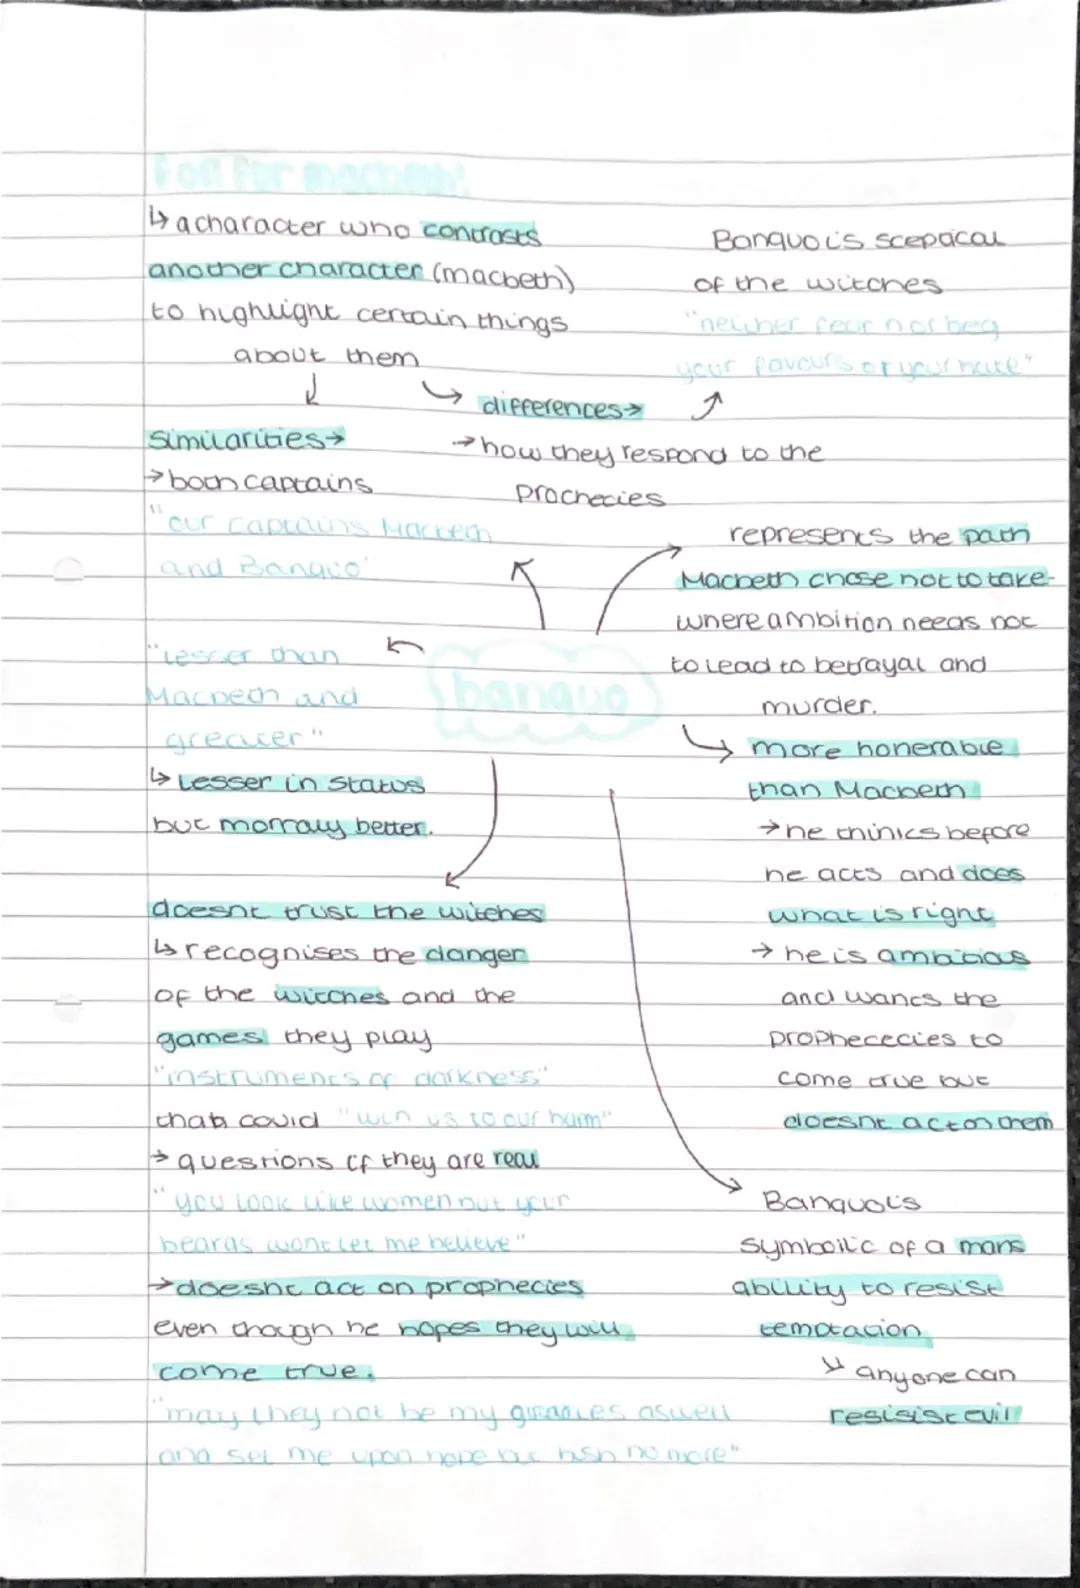 Foil for macbeth:
↳ a character who contrasts
another character (macbeth)
to highlight certain things
about them
Similarities→
→ both captains
"our captains Macbeth
and Banquo"
differences→
→ how they respond to the
prochecies
Banquo is scepacal
of the witches
"neither fear nor beg
your favours or your hate"
banquo
"Lesser than
Macbeth and
greater"
↳ Lesser in status
but morraly better.
doesnt trust the witches
↳ recognises the danger
of the witches and the
games they play
"instruments of darkness"
that could "win us to our harm"
→ questions if they are real
"you look like women but your
beards wont let me believe"
→ doesnt act on prophecies
even though he hopes they will
come true.
"may they not be my aswell
and set me upon hope but no more"
represents the path
Macbeth chose not to take-
where ambition needs not
to lead to betrayal and
murder.
↳ more honerable
than Macbeth
→ he thinks before
he acts and does
what is right
→ he is ambitious
and wants the
prophececies to
come true but
doesnt act on them
Banquo is
symboilic of a mans
ability to resist
temptation
↳ anyone can
resisist evil